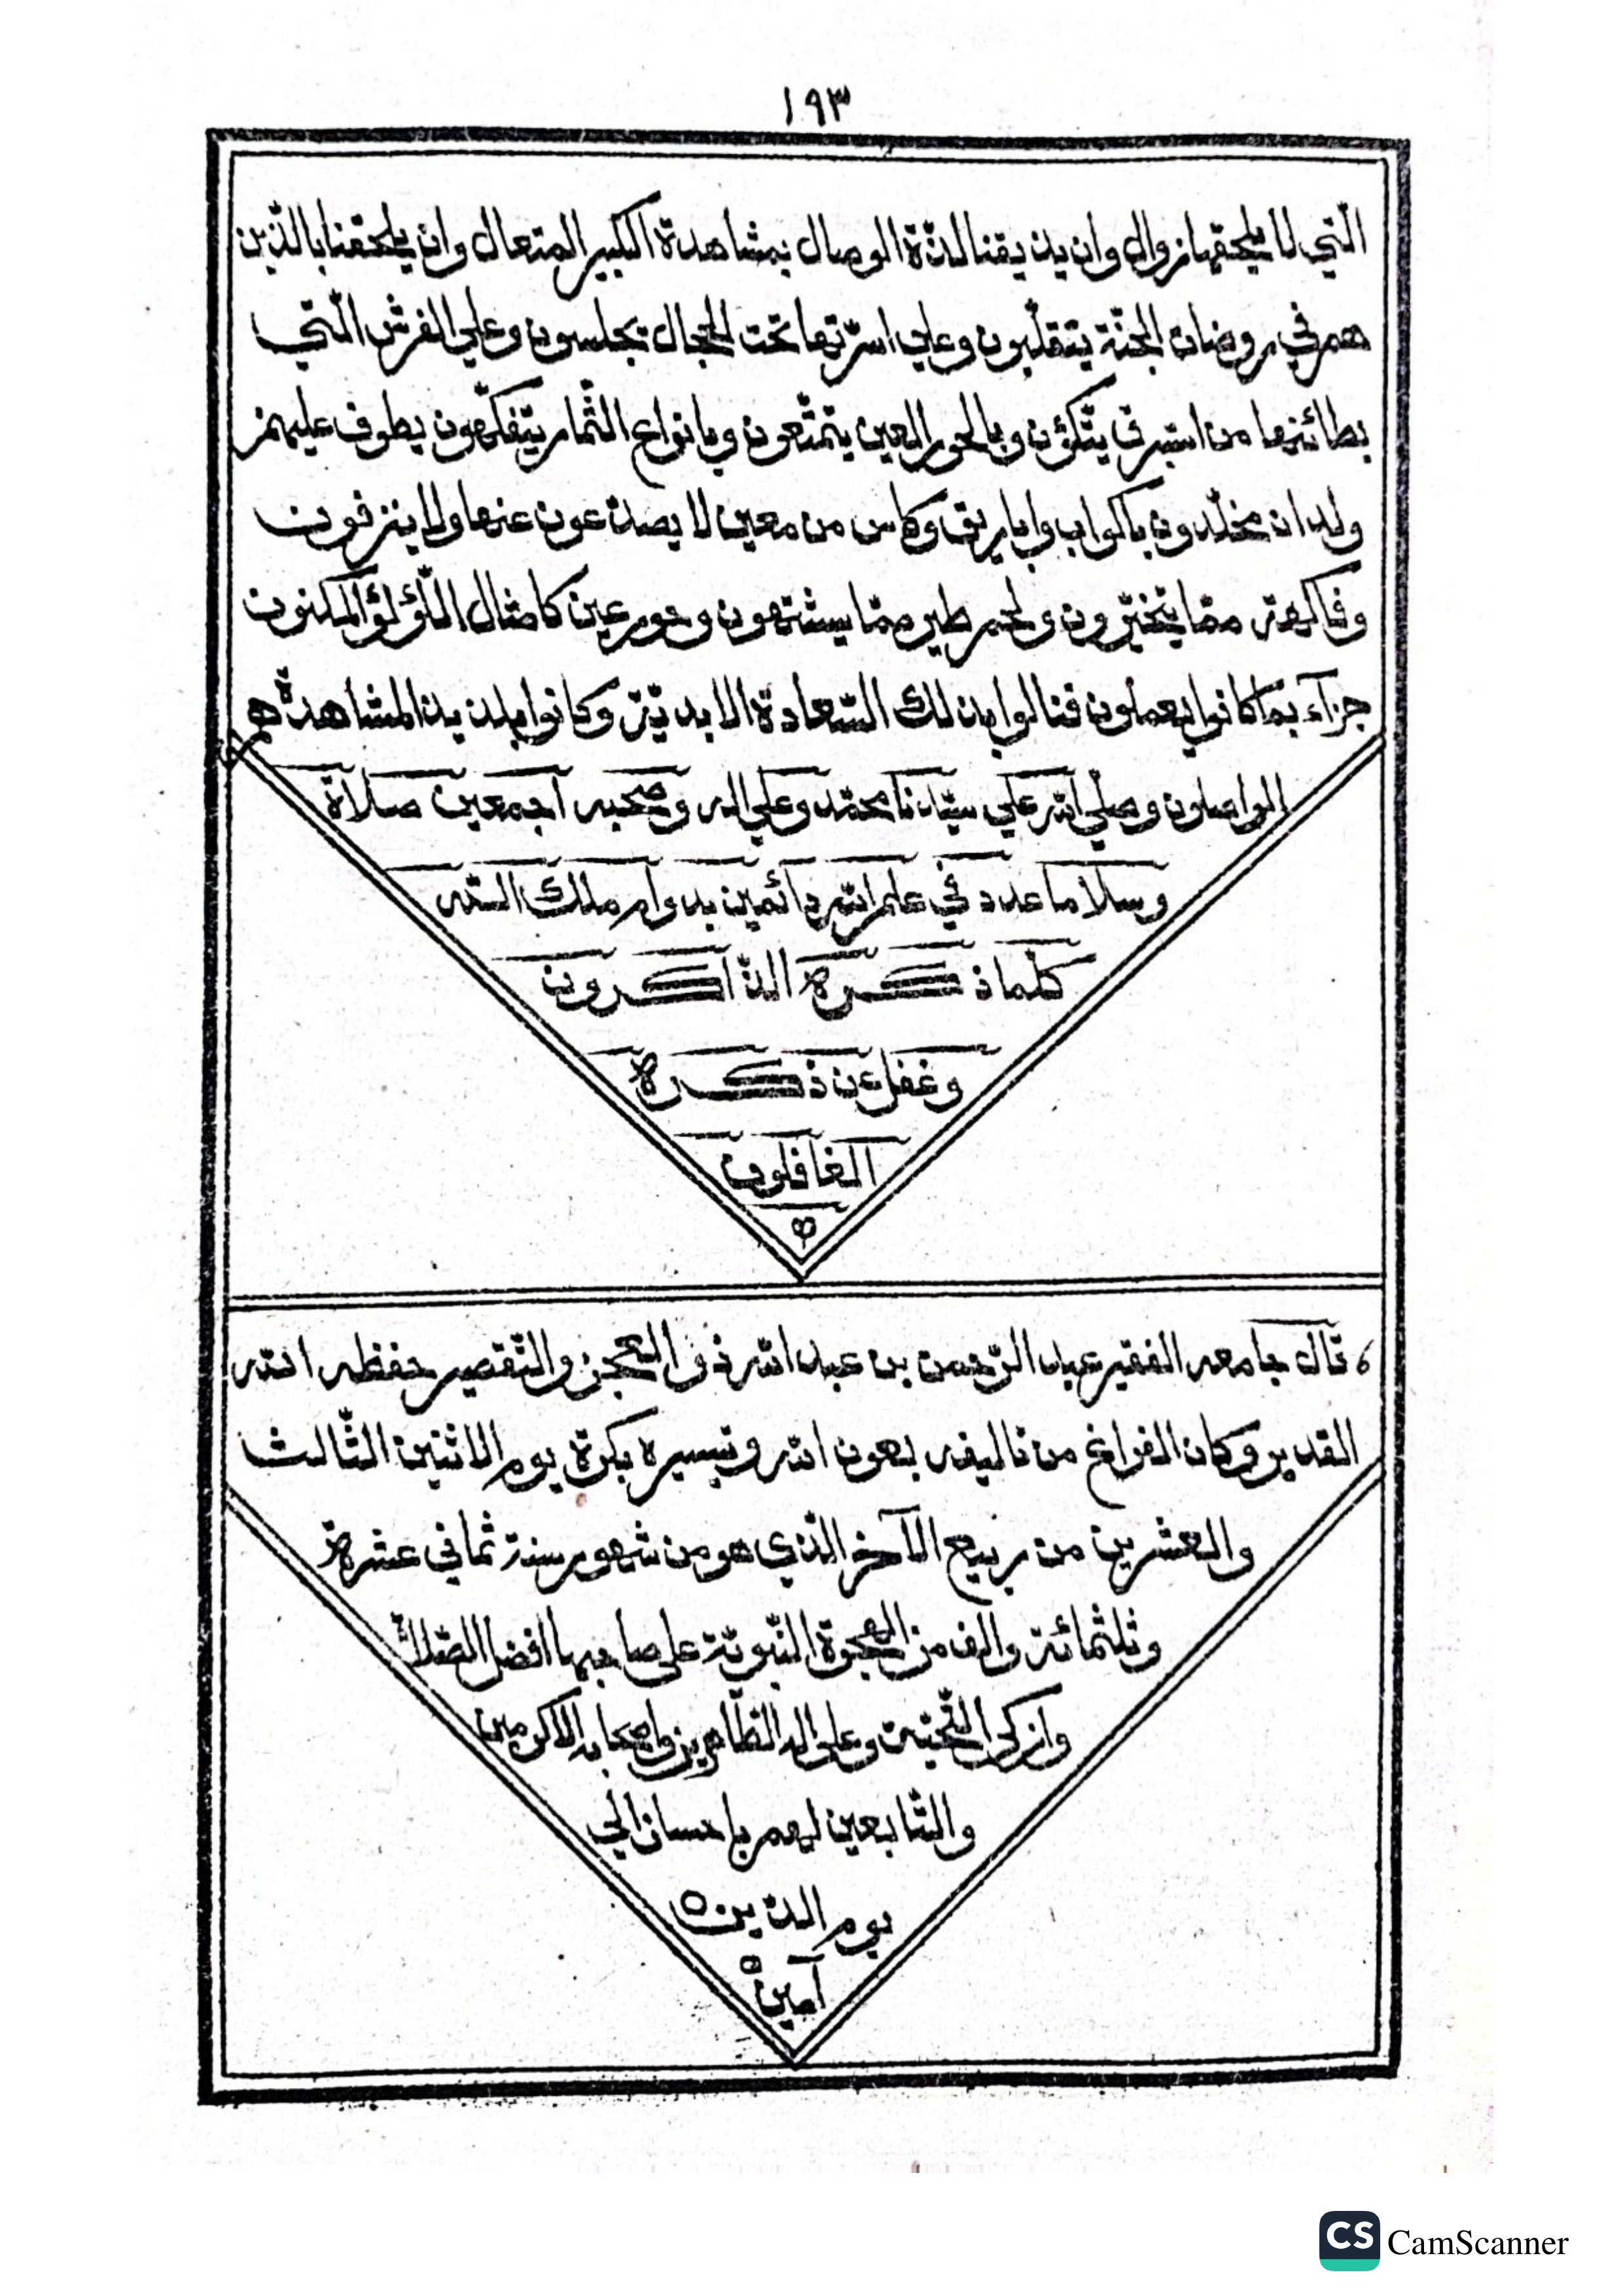 ١٩٣
الّتي لا يلحقها زوال وان يذيقنا لذّة الوصال بمشاهدة الكبير المتعال وان يلحقنا بالّذين
هم في روضات الجنّة يتقلّبون وعلي اسرّتها تحت الحجال يجلسون وعلي الفرش الّتي
بطائنها من استبرق يتّكؤن وبالحور العين يتمتّعون وبانواع الثّمار يتفكّهون يطوف عليهم
ولدان مخلّدون باكواب واباريق وكاس من معين لا يصدعون عنها ولا ينزفون
وفاكهة ممّا يتخيّرون ولحم طير ممّا يشتهون وحور عين كامثال اللّؤلؤ المكنون
جزآء بما كانوا يعملون فنالوا بذلك السّعادة الابديّة وكانوا بلذيذ المشاهدة هم
الواصلون وصلّي الله علي سيّدنا محمّد وعلي اله وصحبه اجمعين صلاة
وسلاما عدد في علم الله دائمين بدوام ملك الله
كلّما ذكره الذّاكرون
وغفل عن ذكره
الغافلون
قال جامعه الفقير عبد الرّحمن بن عبد الله ذو العجز والتّقصير حفظه الله
القدير وكان الفراغ من تاليفه بعون الله وتيسيره بكرة يوم الاثنين الثّالث
والعشرين من ربيع الآخر الّذي هو من شهور سنة ثماني عشرة
وثلثمائة والف من الهجرة النّبويّة على صاحبها افضل الصّلاة
وازكى التّحيّة وعلى اله الطّاهرين واصحابه الاكرمين
والتّابعين لهم باحسان الي
يوم الدّين ٥
آمين
CS CamScanner